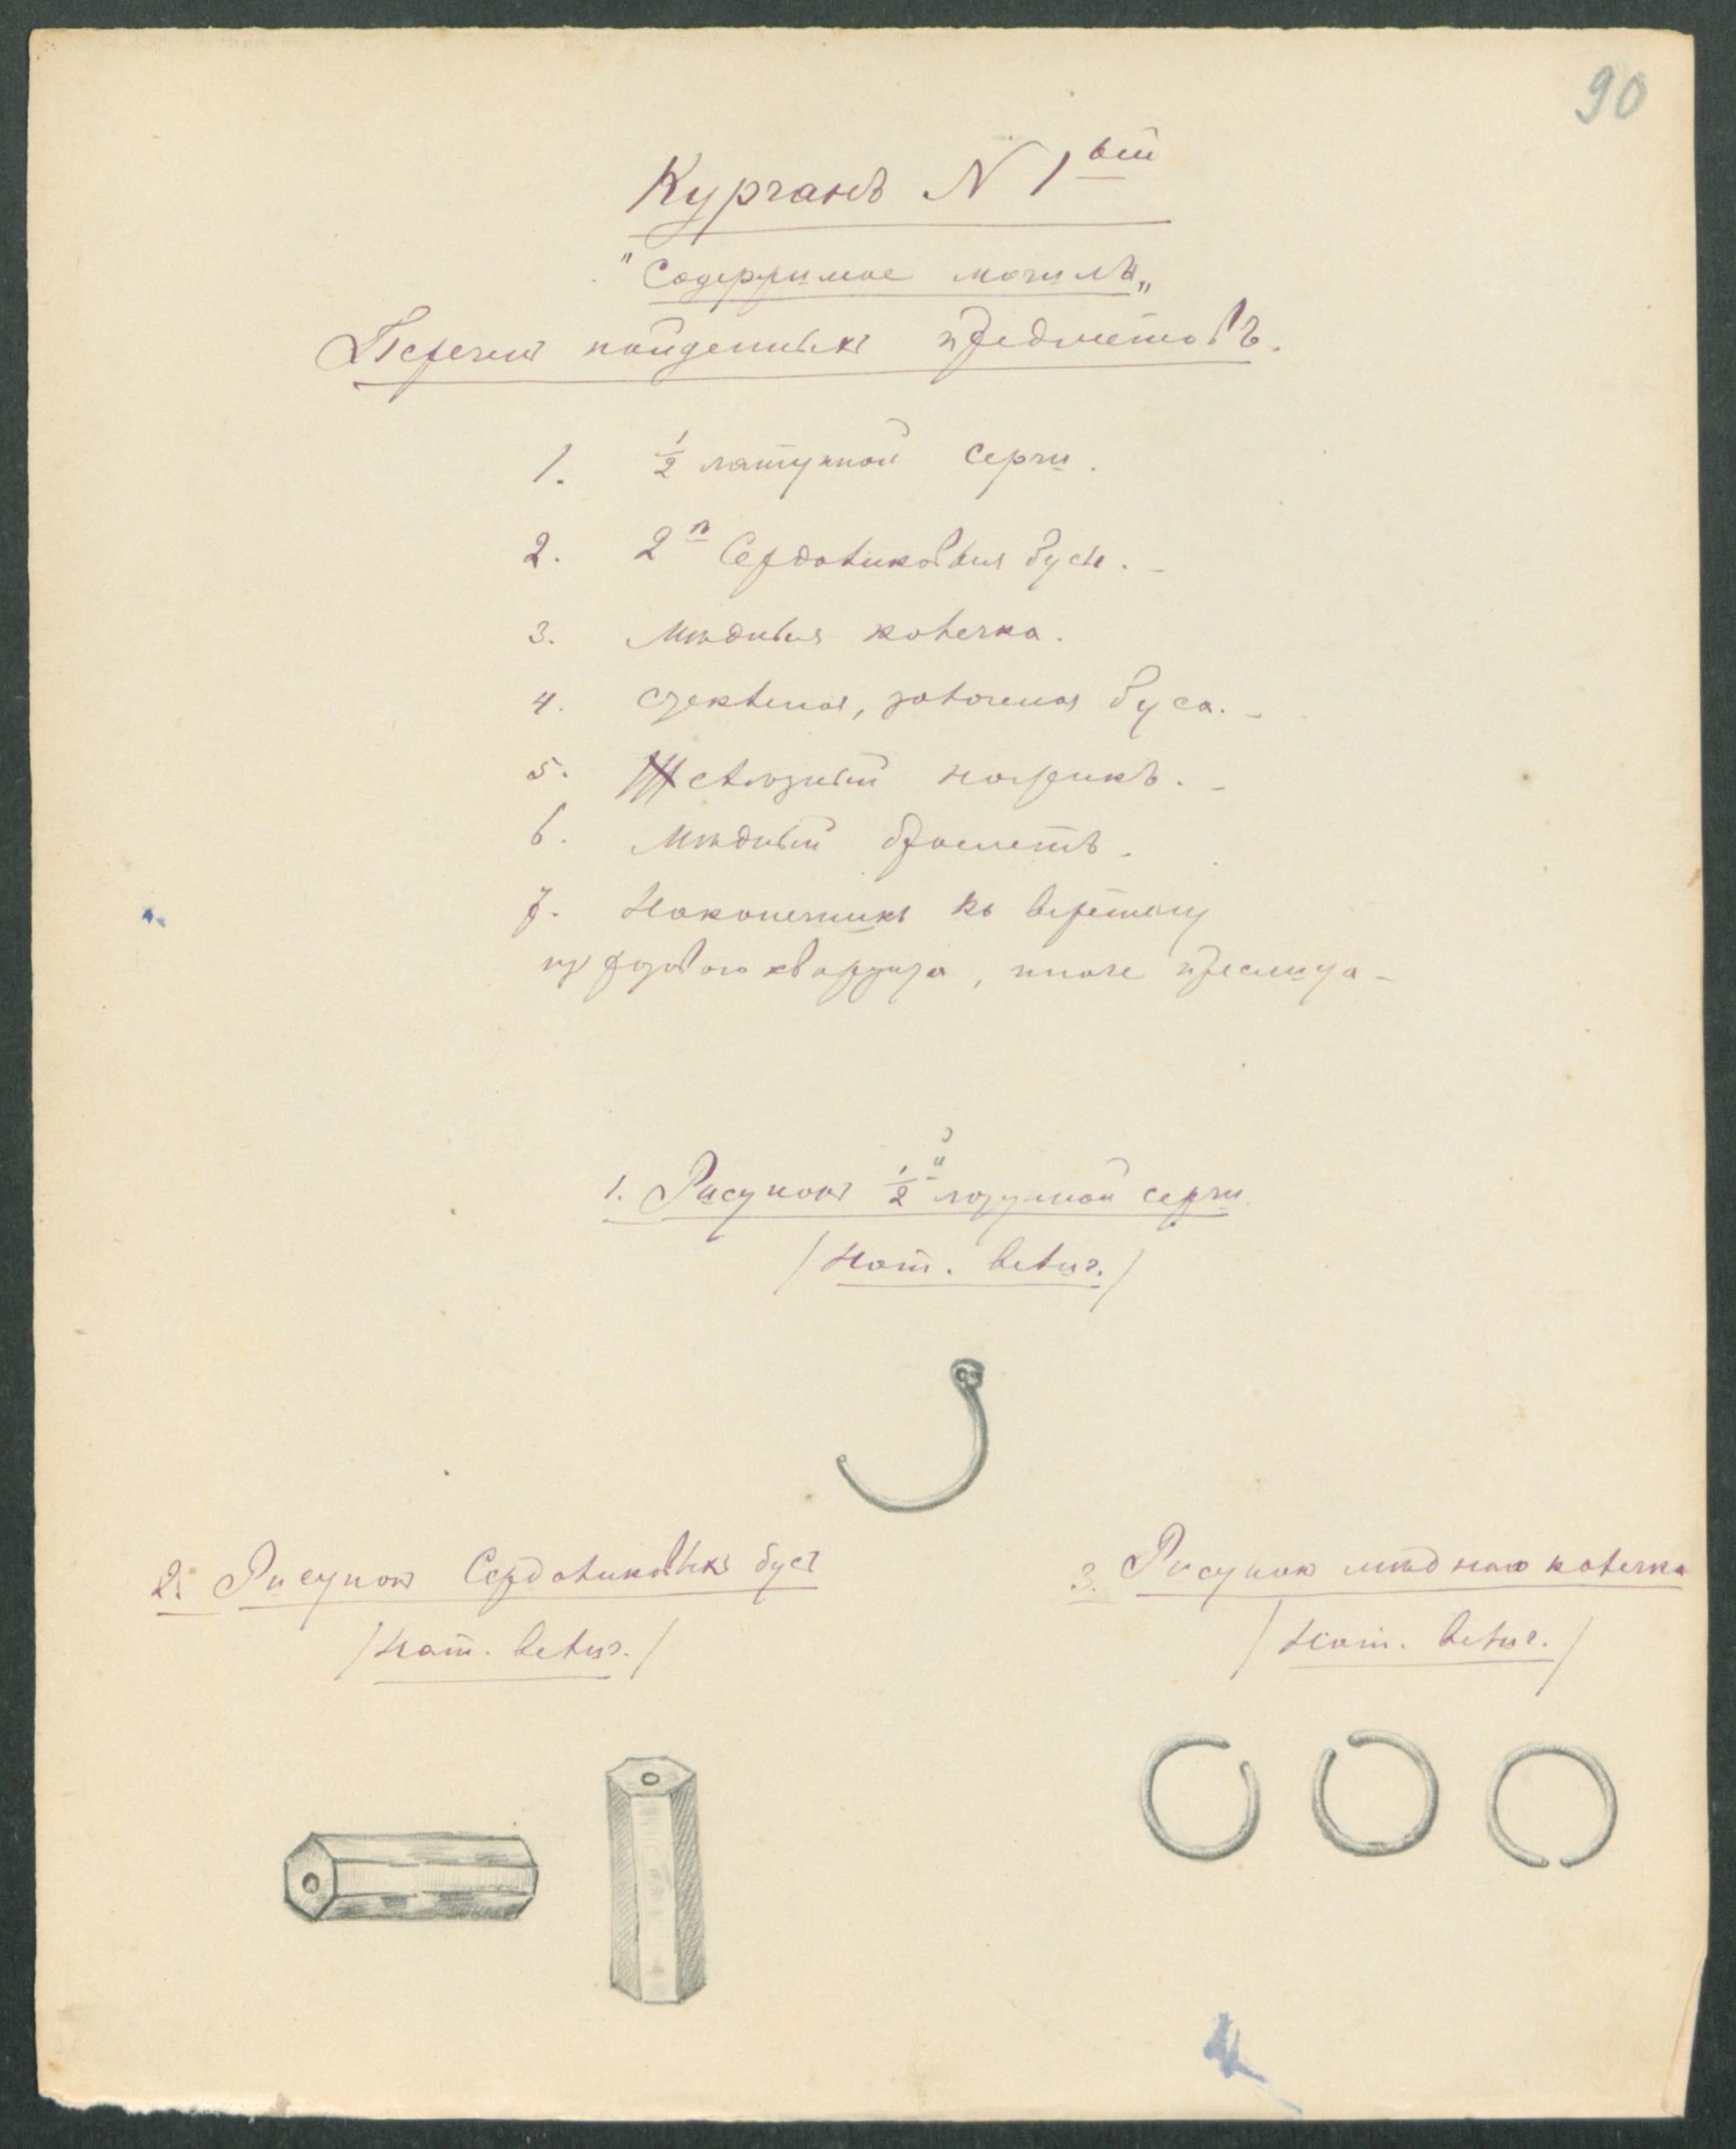 90
Курганъ N 1ый
"Содержимое могилъ„
Перечень найденныхъ предметовъ.
1. ½ латунной серги.
2. 2ѣ Сердоликовыя бусы. -
3. Мѣдныя колечка.
4. стеклянная, золоченая буса. -
5. желѣзный ножикъ. -
6. Мѣдный браслетъ.
7. Наконечникъ къ веретену
изъ розоваго кварцита, иначе пряслица -
1. Рисунокъ ½й латунной серги
/Нат. велич./
2. Рисунокъ Сердоликовыхъ бусъ
3. Рисунок мѣднаго колечка
/Нат. велич./
/Нат. велич./